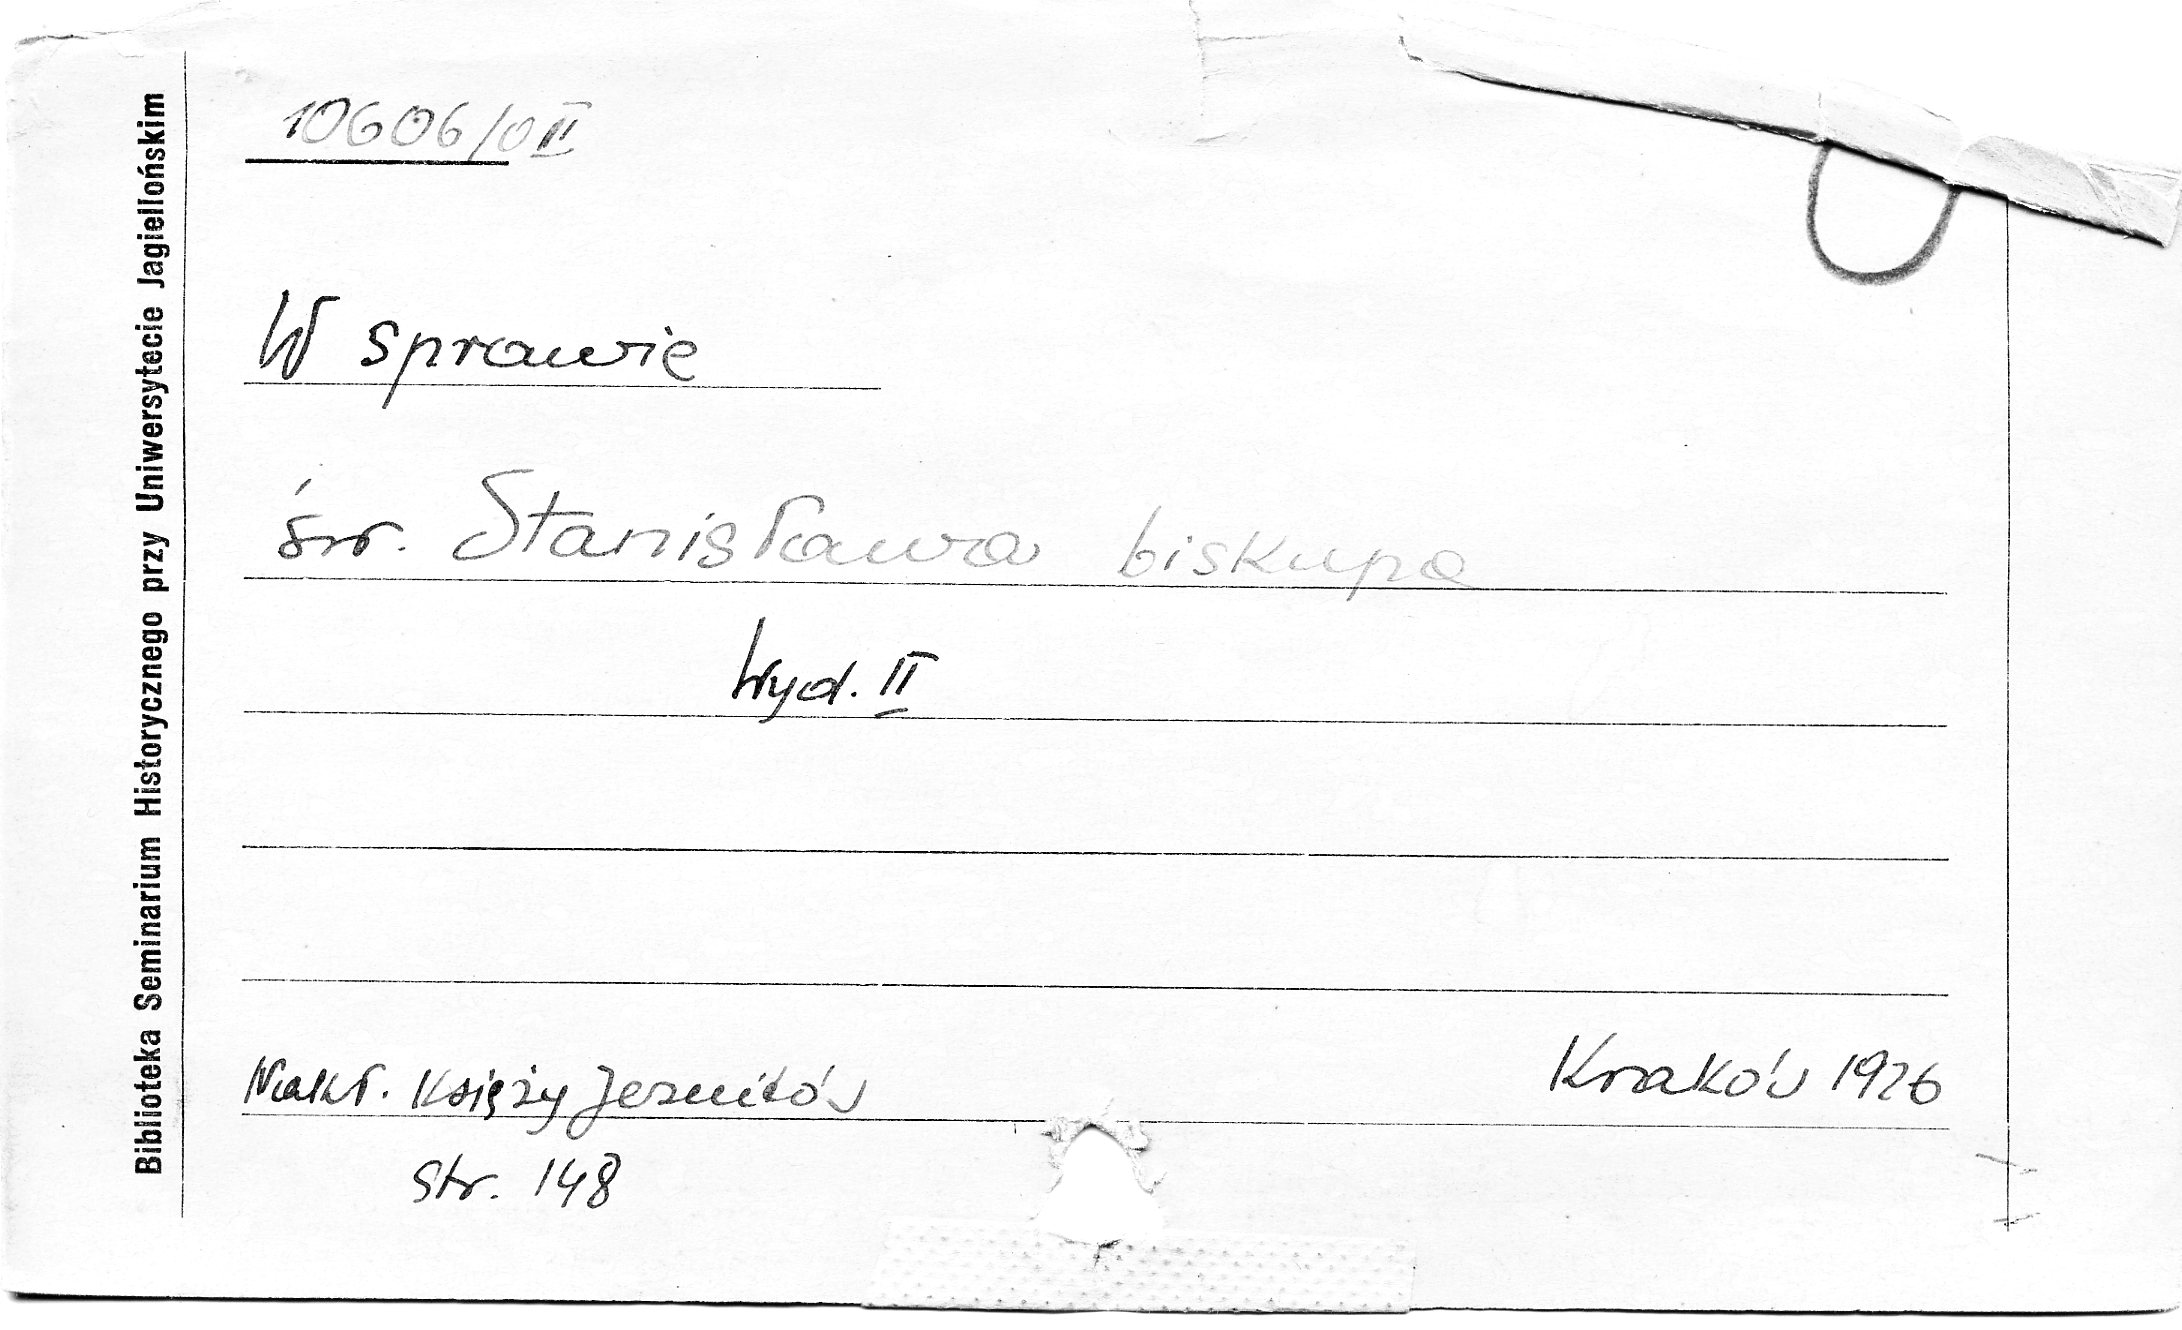 Biblioteka Seminarium Historycznego przy Uniwersytecie Jagiellońskim
10606/0 II
W sprawie
św. Stanisława biskupa
Wyd. II
Nakł. Księży Jezuitów
Kraków 1926
str. 148